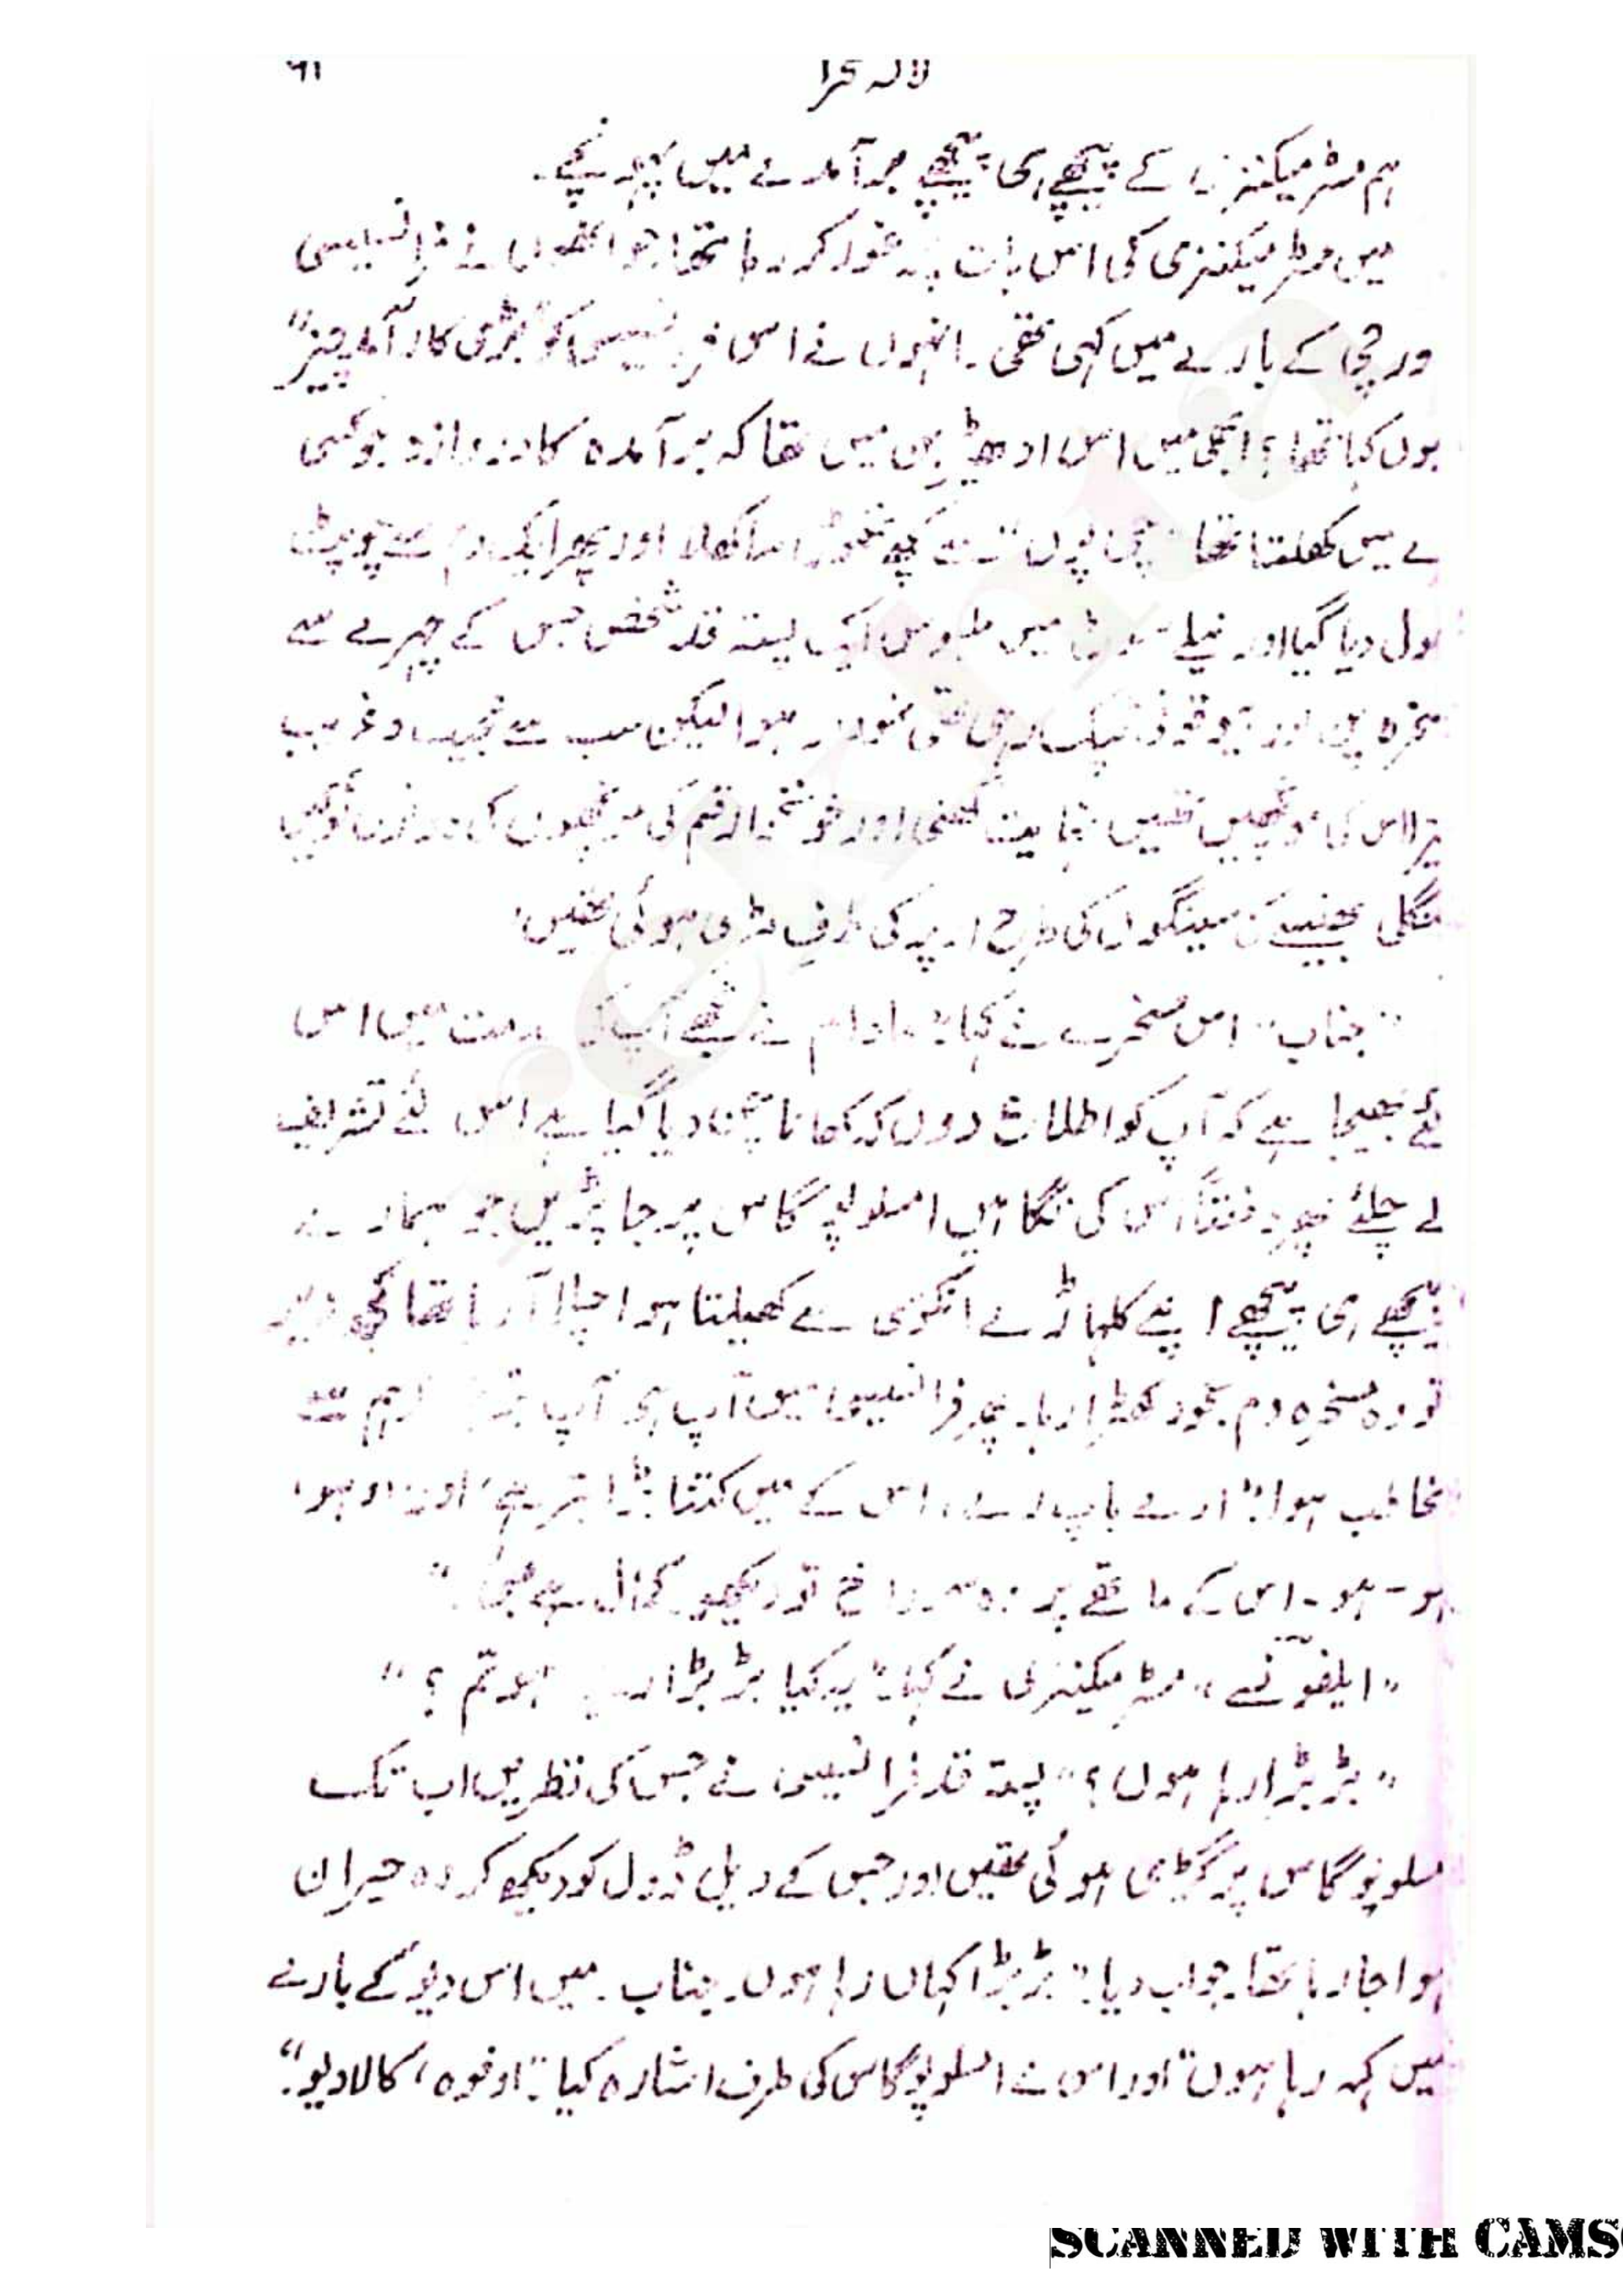 لالہ صحرا ۶۱
ہم مسٹر میکنزی کے پیچھے ہی پیچھے برآمدے میں پہونچے۔
میں مسٹر میکنزی کی اس بات پر غور کر رہا تھا جو انھوں نے فرانسیسی
ورچی کے بارے میں کہی تھی۔ انہوں نے اس فرانسیسی کو "بڑی کارآمد چیز"
یوں کہا تھا؟ ابھی میں اس ادھیڑبن میں تھا کہ برآمدہ کا دروازہ جو کسی
ے میں کھلتا تھا سے کچھ تھوڑا سا کھلا اور پھر ایک دم سے چوپٹ
ھول دیا گیا اور نیلے سوٹ میں ملبوس ایک پستہ قد شخص جس کے چہرے سے
سخرہ پن اور بیوقوفی ٹپک رہی تھی نمودار ہوا لیکن سب سے عجیب و غریب
یز اس کی مونچھیں تھیں نہایت گھنی اور قسم کی مونچھوں کی نوکیں
نگلی بھینسے کے سینگوں کی طرح اوپر کی طرف مڑی ہوئی تھیں۔
"جناب" اس مسخرے نے کہا: "مادام نے مجھے آپ کی خدمت میں اس
لئے بھیجا ہے کہ آپ کو اطلاع دوں کہ کھانا چن دیا گیا ہے اس لئے تشریف
لے چلئے پھر دفعتاً اس کی نگاہیں امسلوپوگاس پر جا پڑیں جو ہمارے
پیچھے ہی پیچھے اپنے کلہاڑے انکوزی سے کھیلتا ہوا چلا آ رہا تھا کچھ دیر
تو وہ مسخرہ دم بخود کھڑا رہا۔ پھر فرانسیسی میں آپ ہی آپ ہم سے
مخاطب ہوا: "ارے باپ رے، اس کے میں کتنا بڑا تبر ہے، اور اوہو،
ہو۔ہو۔ اس کے ماتھے پر وہ سوراخ تو دیکھو۔ کمال ہے بھئی۔"
"ایلفونسے، مسٹر میکنزی نے کہا: "یہ کیا بڑبڑا رہے ہو تم؟"
"بڑبڑا رہا ہوں؟" پستہ قد فرانسیسی نے جس کی نظریں اب تک
مسلوپوگاس پر گڑی ہوئی تھیں اور جس کے ڈیل ڈول کو دیکھ کر وہ حیران
ہوا جا رہا تھا۔ جواب دیا: "بڑبڑا کہاں رہا ہوں۔ جناب۔ میں اس دیو کے بارے
میں کہہ رہا ہوں" اور اس نے امسلوپوگاس کی طرف اشارہ کیا: "اوفوہ، کالا دیو"
SCANNED WITH CAMS